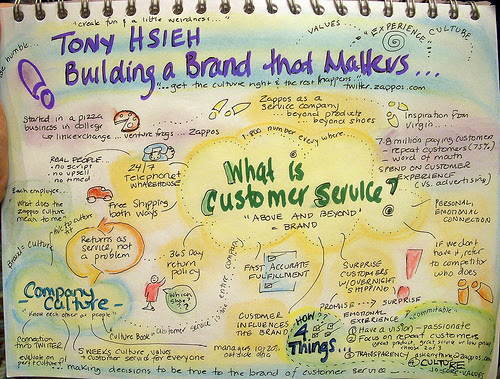 "create fun & a little weirdness..."
be humble...
TONY HSIEH
Building a Brand that Matters...
VALUES
EXPERIENCE
CULTURE
"...get the culture right & the rest happens."
twitter.zappos.com
Started in a pizza
business in college
linkexchange... venture frogs... Zappos
Zappos as a
service company
... beyond products
beyond shoes
Inspiration from
Virgin..
1-800 number every where...
7.8 million paying customers
- repeat customers (75%)
- word of mouth
SPEND ON CUSTOMER
EXPERIENCE
(vs. advertising)
REAL PEOPLE...
- no script
- no upsell
- no timed
24/7
Telephone &
WAREHOUSE
What is
customer service?
"ABOVE AND BEYOND"
= BRAND
Each employee...
What does the
zappos culture
mean to me"
Free Shipping
both ways
PERSONAL,
EMOTIONAL
CONNECTION
Returns as
service, not
a problem
Brand = Culture
365 Day
return
policy
FAST, ACCURATE
FULFILLMENT
SURPRISE
CUSTOMERS
W/OVERNIGHT
SHIPPING!
if we don't
have it, refer
to competitor
who does
Company
Culture -
"Know each other as people"
Which
shoe?
customer service is the entire company
CUSTOMER
INFLUENCES
THIS BRAND
HOW??
4
Things..
PROMISE ---> SURPRISE
EMOTIONAL
EXPERIENCE
"committable"
① Have a vision - passionate
② Focus on repeat customers
great product, great service or low price
choose 2 of 3
③ TRANSPARENCY
ask anything@zappos.com
④ CULTURE
10-CORE-VALUES
Connection
thro' TWITTER
"Culture Book"
5 WEEKS culture value
+ customer service for everyone
managers 10/20%
outside ofc
...making decisions to be true to the brand of customer service...